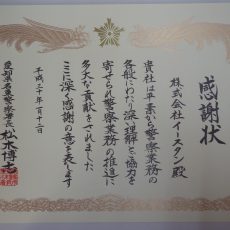 感謝状
株式会社イースケン殿
貴社は平素から警察業務の
各般にわたり深い理解と協力を
寄せられ警察業務の推進に
多大な貢献をされました
ここに深く感謝の意を表します
平成三十年一月十二日
愛知県名東警察署長 松木博志